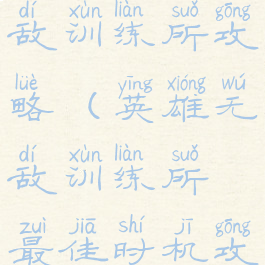 dí xùn liàn suǒ gōng
敌训练所攻
lüè yīng xióng wú
略（英雄无
dí xùn liàn suǒ
敌训练所
zuì jiā shí jī gōng
最佳时机攻